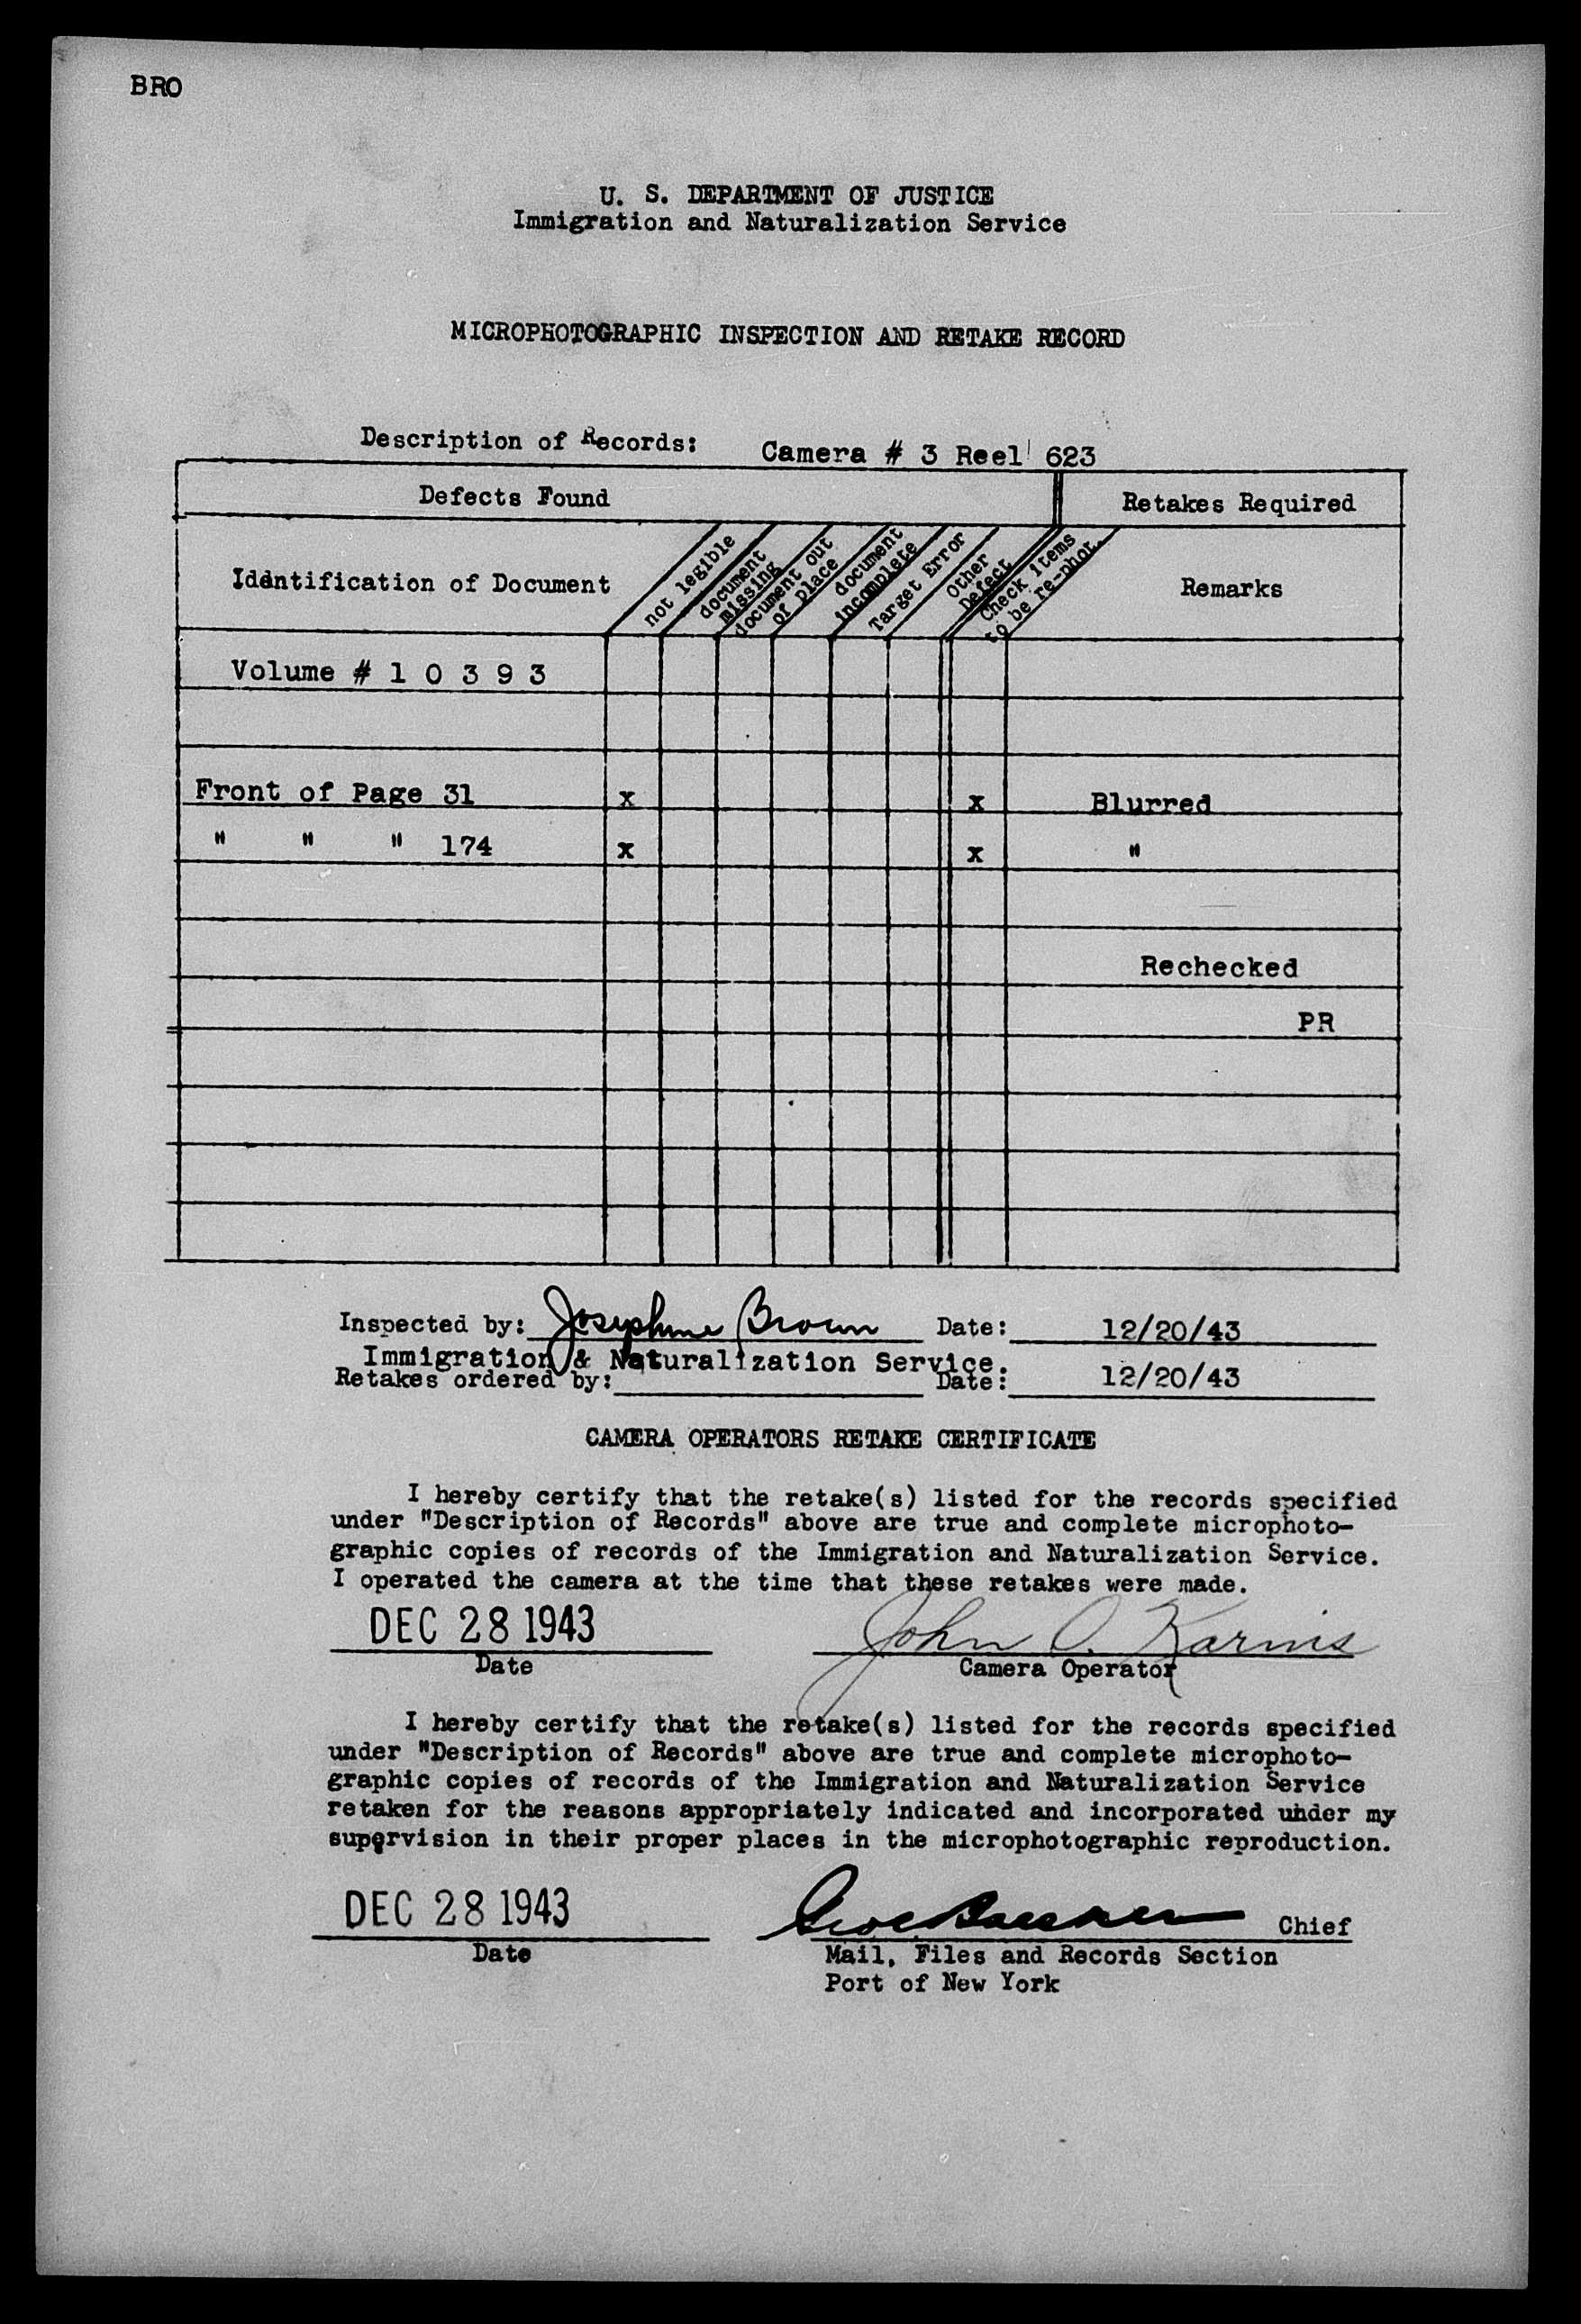 BRO
U. S. DEPARTMENT OF JUSTICE
Immigration and Naturalization Service
MICROPHOTOGRAPHIC INSPECTION AND RETAKE RECORD
Description of Records: Camera # 3 Reel 623
Defects Found Retakes Required
Identification of Document
not legible
document
missing
document out
of place
document
incomplete
Target Error
Other
Defect
Check items
to be re-phot.
Remarks
Volume # 1 0 3 9 3
Front of Page 31 x x Blurred
" " " 174 x x "
Rechecked
PR
Inspected by: Josephine Brown Date: 12/20/43
Immigration & Naturalization Service.
Retakes ordered by: Date: 12/20/43
CAMERA OPERATORS RETAKE CERTIFICATE
I hereby certify that the retake(s) listed for the records specified
under "Description of Records" above are true and complete microphoto-
graphic copies of records of the Immigration and Naturalization Service.
I operated the camera at the time that these retakes were made.
DEC 28 1943 John O. Karins
Date Camera Operator
I hereby certify that the retake(s) listed for the records specified
under "Description of Records" above are true and complete microphoto-
graphic copies of records of the Immigration and Naturalization Service
retaken for the reasons appropriately indicated and incorporated under my
supervision in their proper places in the microphotographic reproduction.
DEC 28 1943 Chief
Date Mail, Files and Records Section
Port of New York